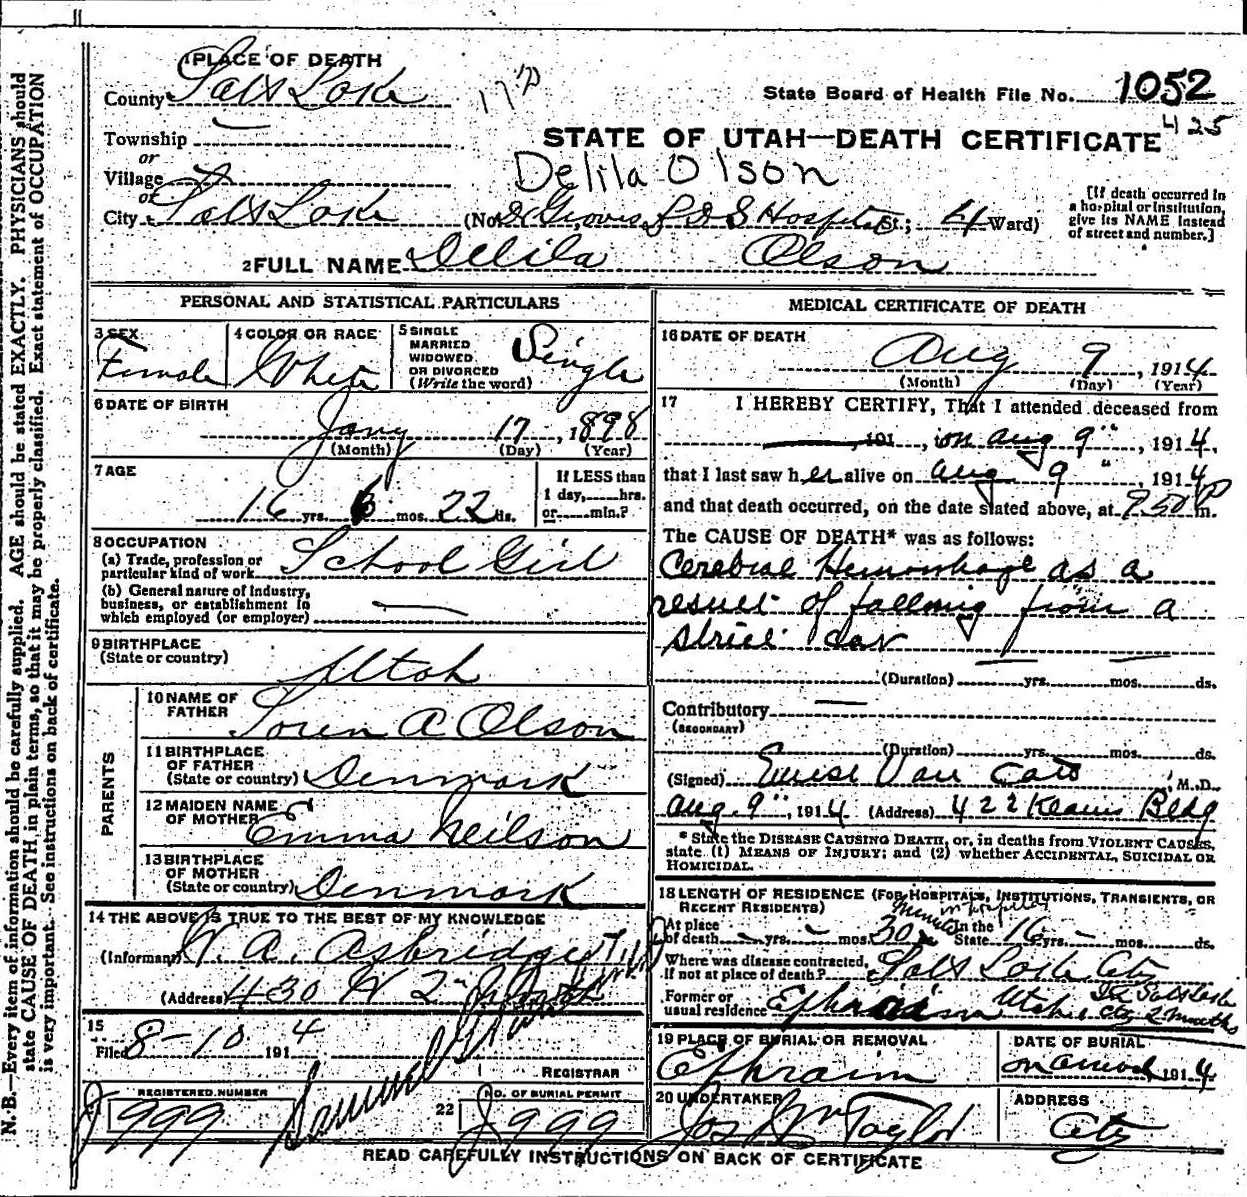 1 PLACE OF DEATH
County Salt Lake
State Board of Health File No. 1052
425
Township
or
Village
or
City Salt Lake
STATE OF UTAH—DEATH CERTIFICATE
Delila Olson
(No. Dr Groves L D S Hospital St.; 4 Ward)
[If death occurred in a hospital or institution, give its NAME instead of street and number.]
2 FULL NAME Delila Olson
PERSONAL AND STATISTICAL PARTICULARS
3 SEX Female
4 COLOR OR RACE White
5 SINGLE MARRIED WIDOWED OR DIVORCED (Write the word) Single
6 DATE OF BIRTH
Jany 17, 1898
(Month) (Day) (Year)
7 AGE
16 yrs. 6 mos. 22 ds.
If LESS than 1 day,......hrs. or......min.?
8 OCCUPATION
(a) Trade, profession or particular kind of work School Girl
(b) General nature of Industry, business, or establishment in which employed (or employer)
9 BIRTHPLACE
(State or country) Utah
PARENTS
10 NAME OF FATHER Soren A Olson
11 BIRTHPLACE OF FATHER
(State or country) Denmark
12 MAIDEN NAME OF MOTHER Emma Neilson
13 BIRTHPLACE OF MOTHER
(State or country) Denmark
14 THE ABOVE IS TRUE TO THE BEST OF MY KNOWLEDGE
(Informant) W. A. Asbridge
(Address) 430 W 2"
15
Filed 8-10 1914
REGISTRAR
REGISTERED NUMBER
J 999
22 NO. OF BURIAL PERMIT
J 999
MEDICAL CERTIFICATE OF DEATH
16 DATE OF DEATH
Aug 9, 1914
(Month) (Day) (Year)
17 I HEREBY CERTIFY, That I attended deceased from
, 191 , on Aug 9", 1914,
that I last saw her alive on Aug 9", 1914
and that death occurred, on the date stated above, at 9 50 P m.
The CAUSE OF DEATH* was as follows:
Cerebral Hemorrhage as a
result of falling from a
street car
(Duration) yrs. mos. ds.
Contributory
(SECONDARY)
(Duration) yrs. mos. ds.
(Signed) Van M.D.
Aug. 9", 1914 (Address) 422 Kearns Bldg
* State the DISEASE CAUSING DEATH, or, in deaths from VIOLENT CAUSES, state (1) MEANS OF INJURY; and (2) whether ACCIDENTAL, SUICIDAL OR HOMICIDAL.
18 LENGTH OF RESIDENCE (FOR HOSPITALS, INSTITUTIONS, TRANSIENTS, OR RECENT RESIDENTS)
minutes in hospital
At place of death yrs. mos. 30 In the State 16 yrs. mos. ds.
Where was disease contracted, If not at place of death? Salt Lake City
Former or usual residence Ephraim Utah In Salt Lake City 2 months
19 PLACE OF BURIAL OR REMOVAL
Ephraim
DATE OF BURIAL
on arrival, 1914
20 UNDERTAKER
Jos Wm Taylor
ADDRESS
City
READ CAREFULLY INSTRUCTIONS ON BACK OF CERTIFICATE
N. B.—Every item of information should be carefully supplied. AGE should be stated EXACTLY. PHYSICIANS should
state CAUSE OF DEATH in plain terms, so that it may be properly classified. Exact statement of OCCUPATION
is very important. See instructions on back of certificate.